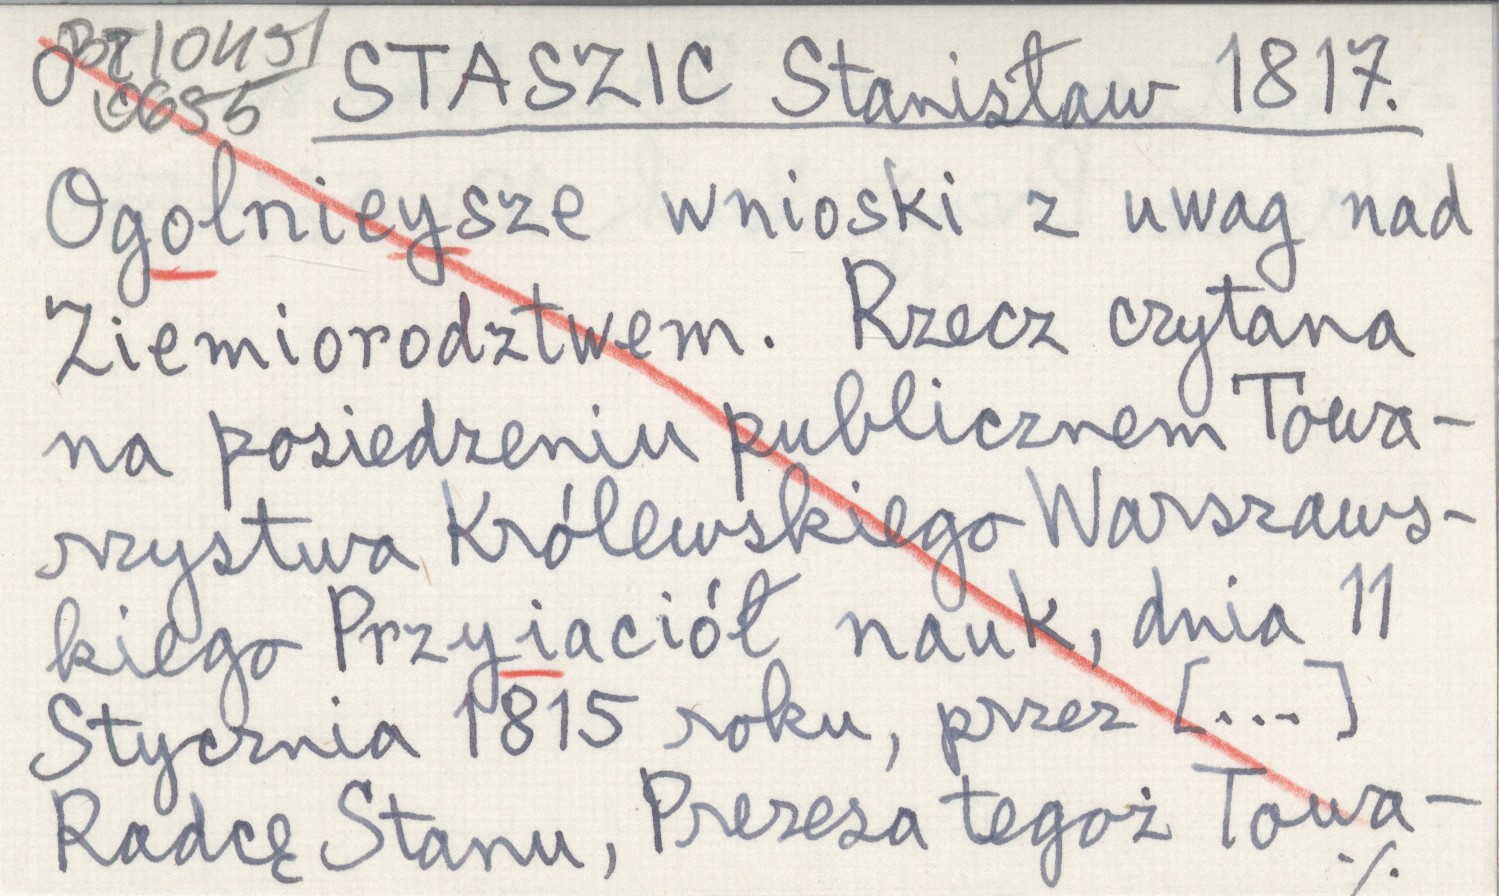 O STASZIC Stanisław 1817.
Ogolnieysze wnioski z uwag nad
Ziemiorodztwem. Rzecz czytana
na posiedzeniu publicznem Towa-
rzystwa Królewskiego Warszaws-
kiego Przyiaciół nauk, dnia 11
Stycznia 1815 roku, przez [...]
Radcę Stanu, Prezesa tegoż Towa-
./.